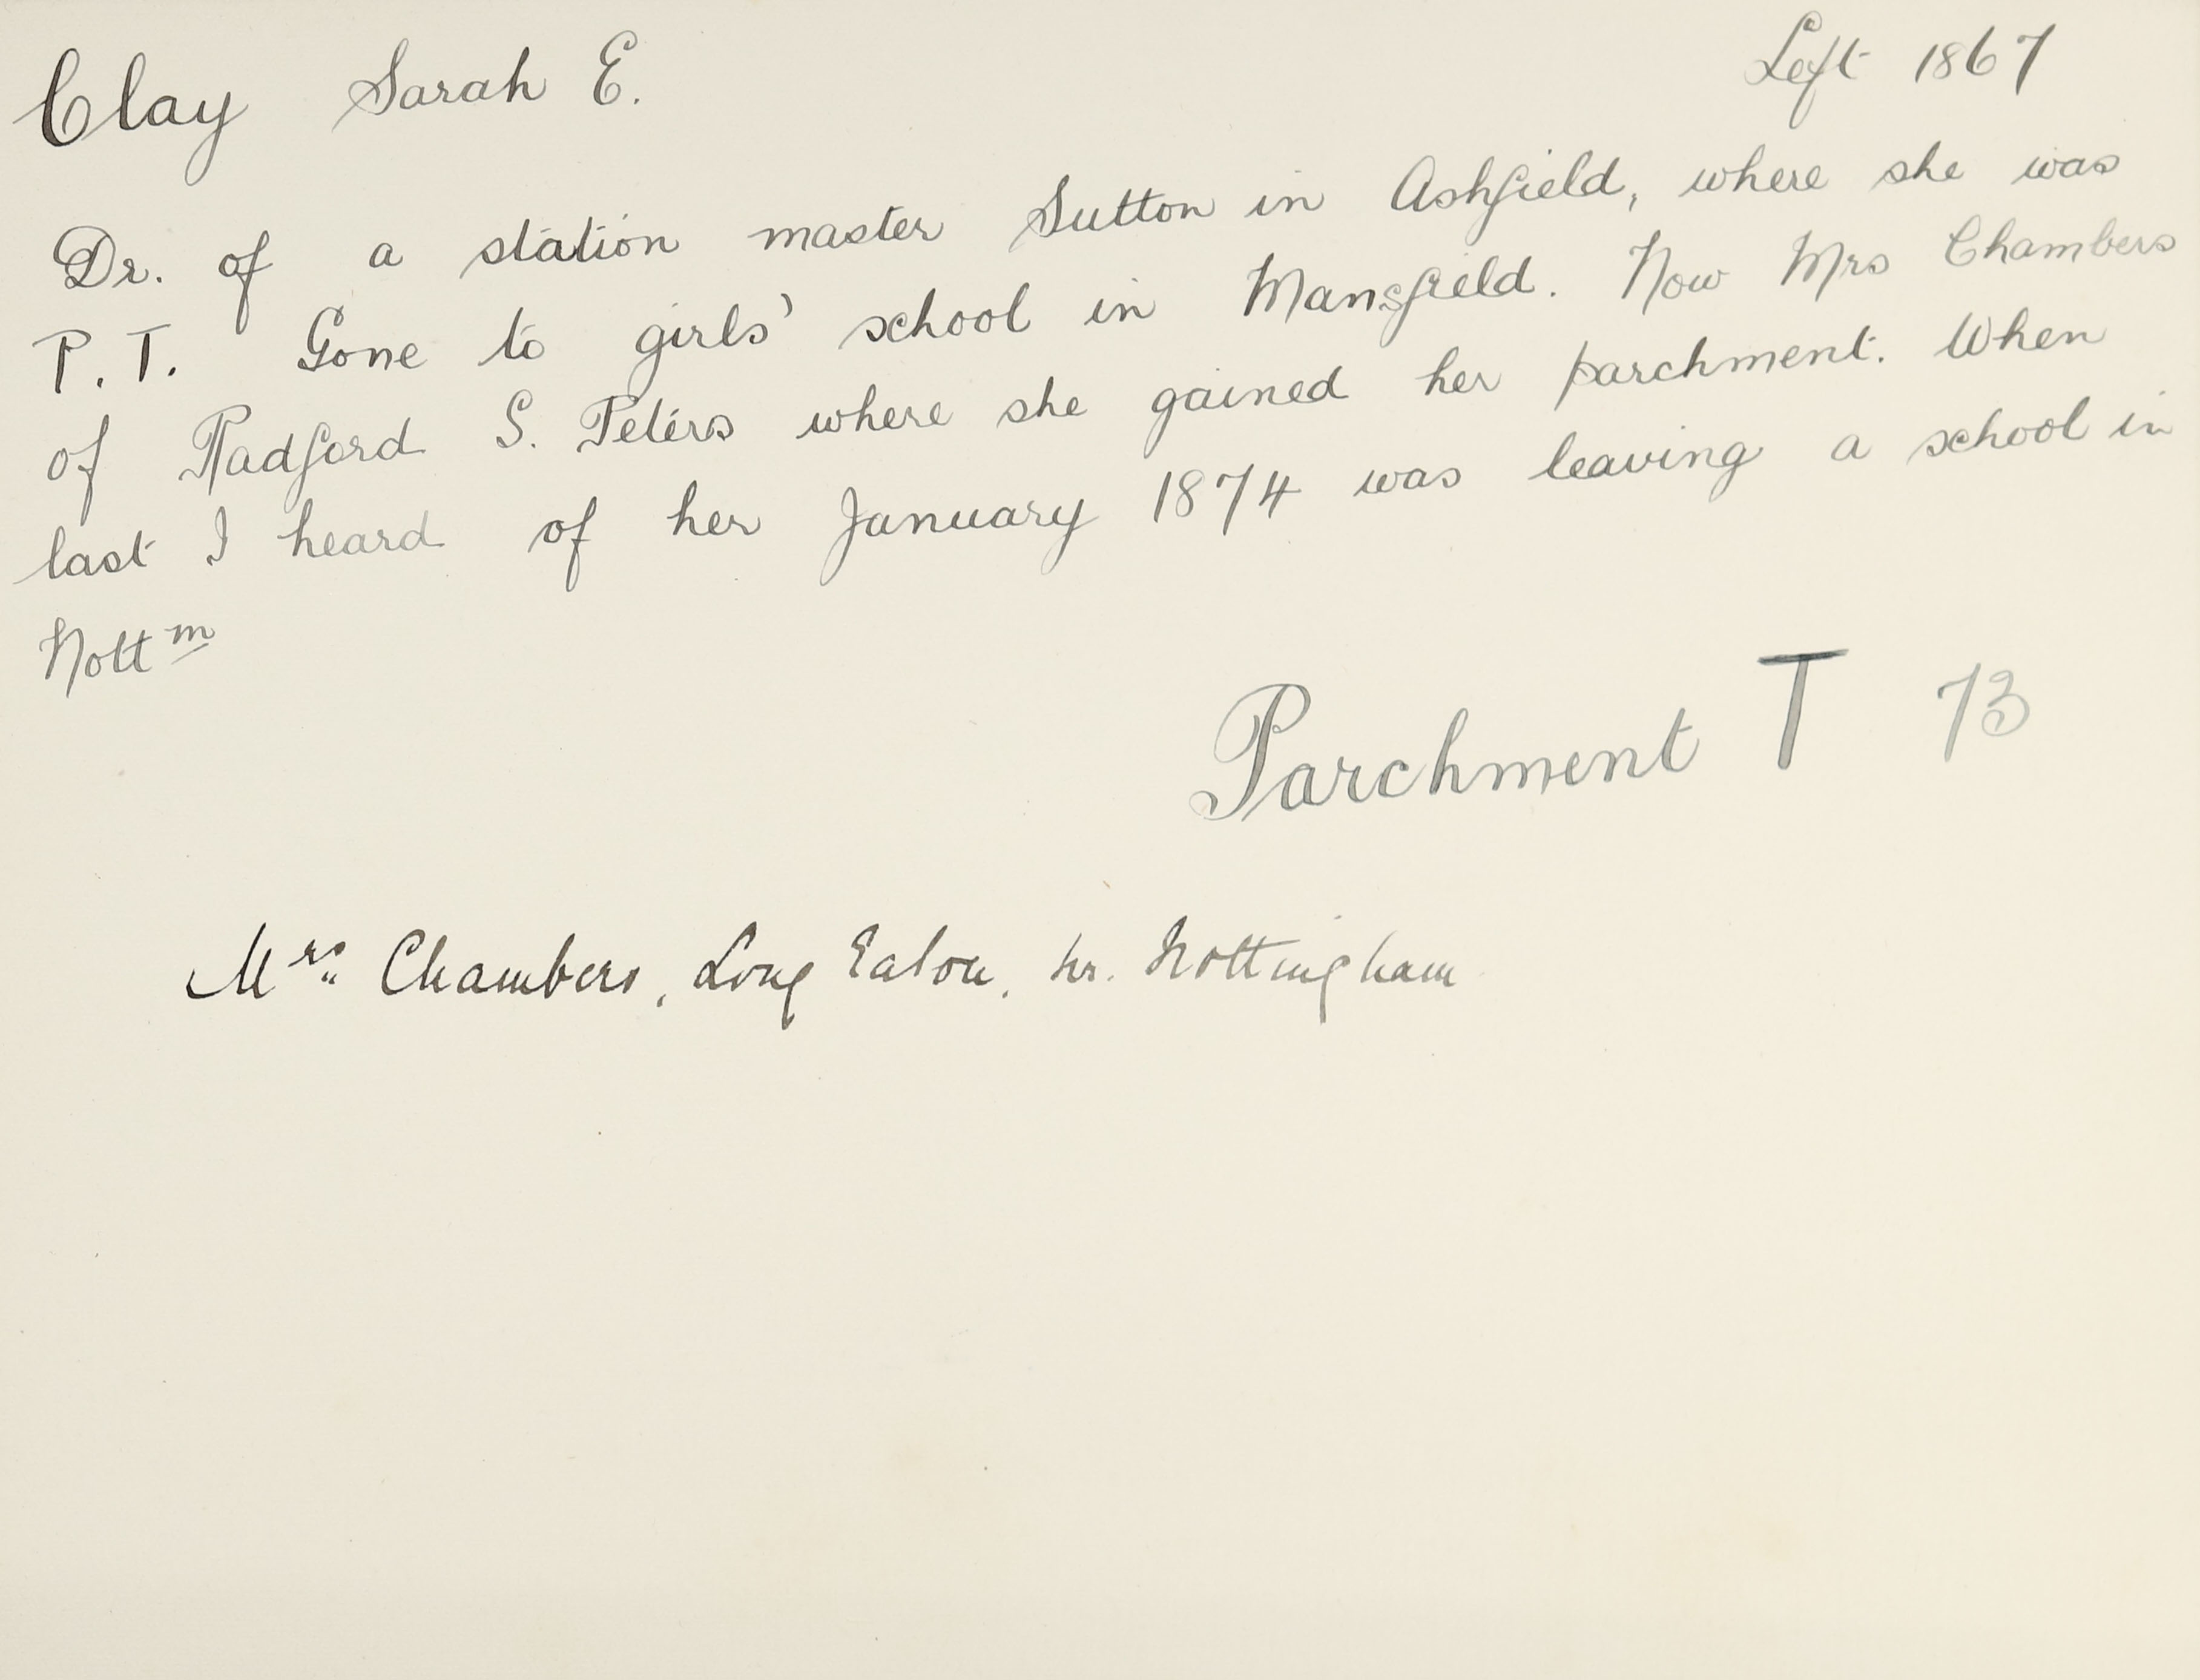 Clay Sarah E. Left 1867
Dr. of a station master Sutton in Ashfield, where she was
P. T. Gone to girls' school in Mansfield. Now Mrs Chambers
of Radford S. Peters where she gained her parchment. When
last I heard of her January 1874 was leaving a school in
Nottm
Parchment T 73
Mrs. Chambers, Long Eaton, nr. Nottingham